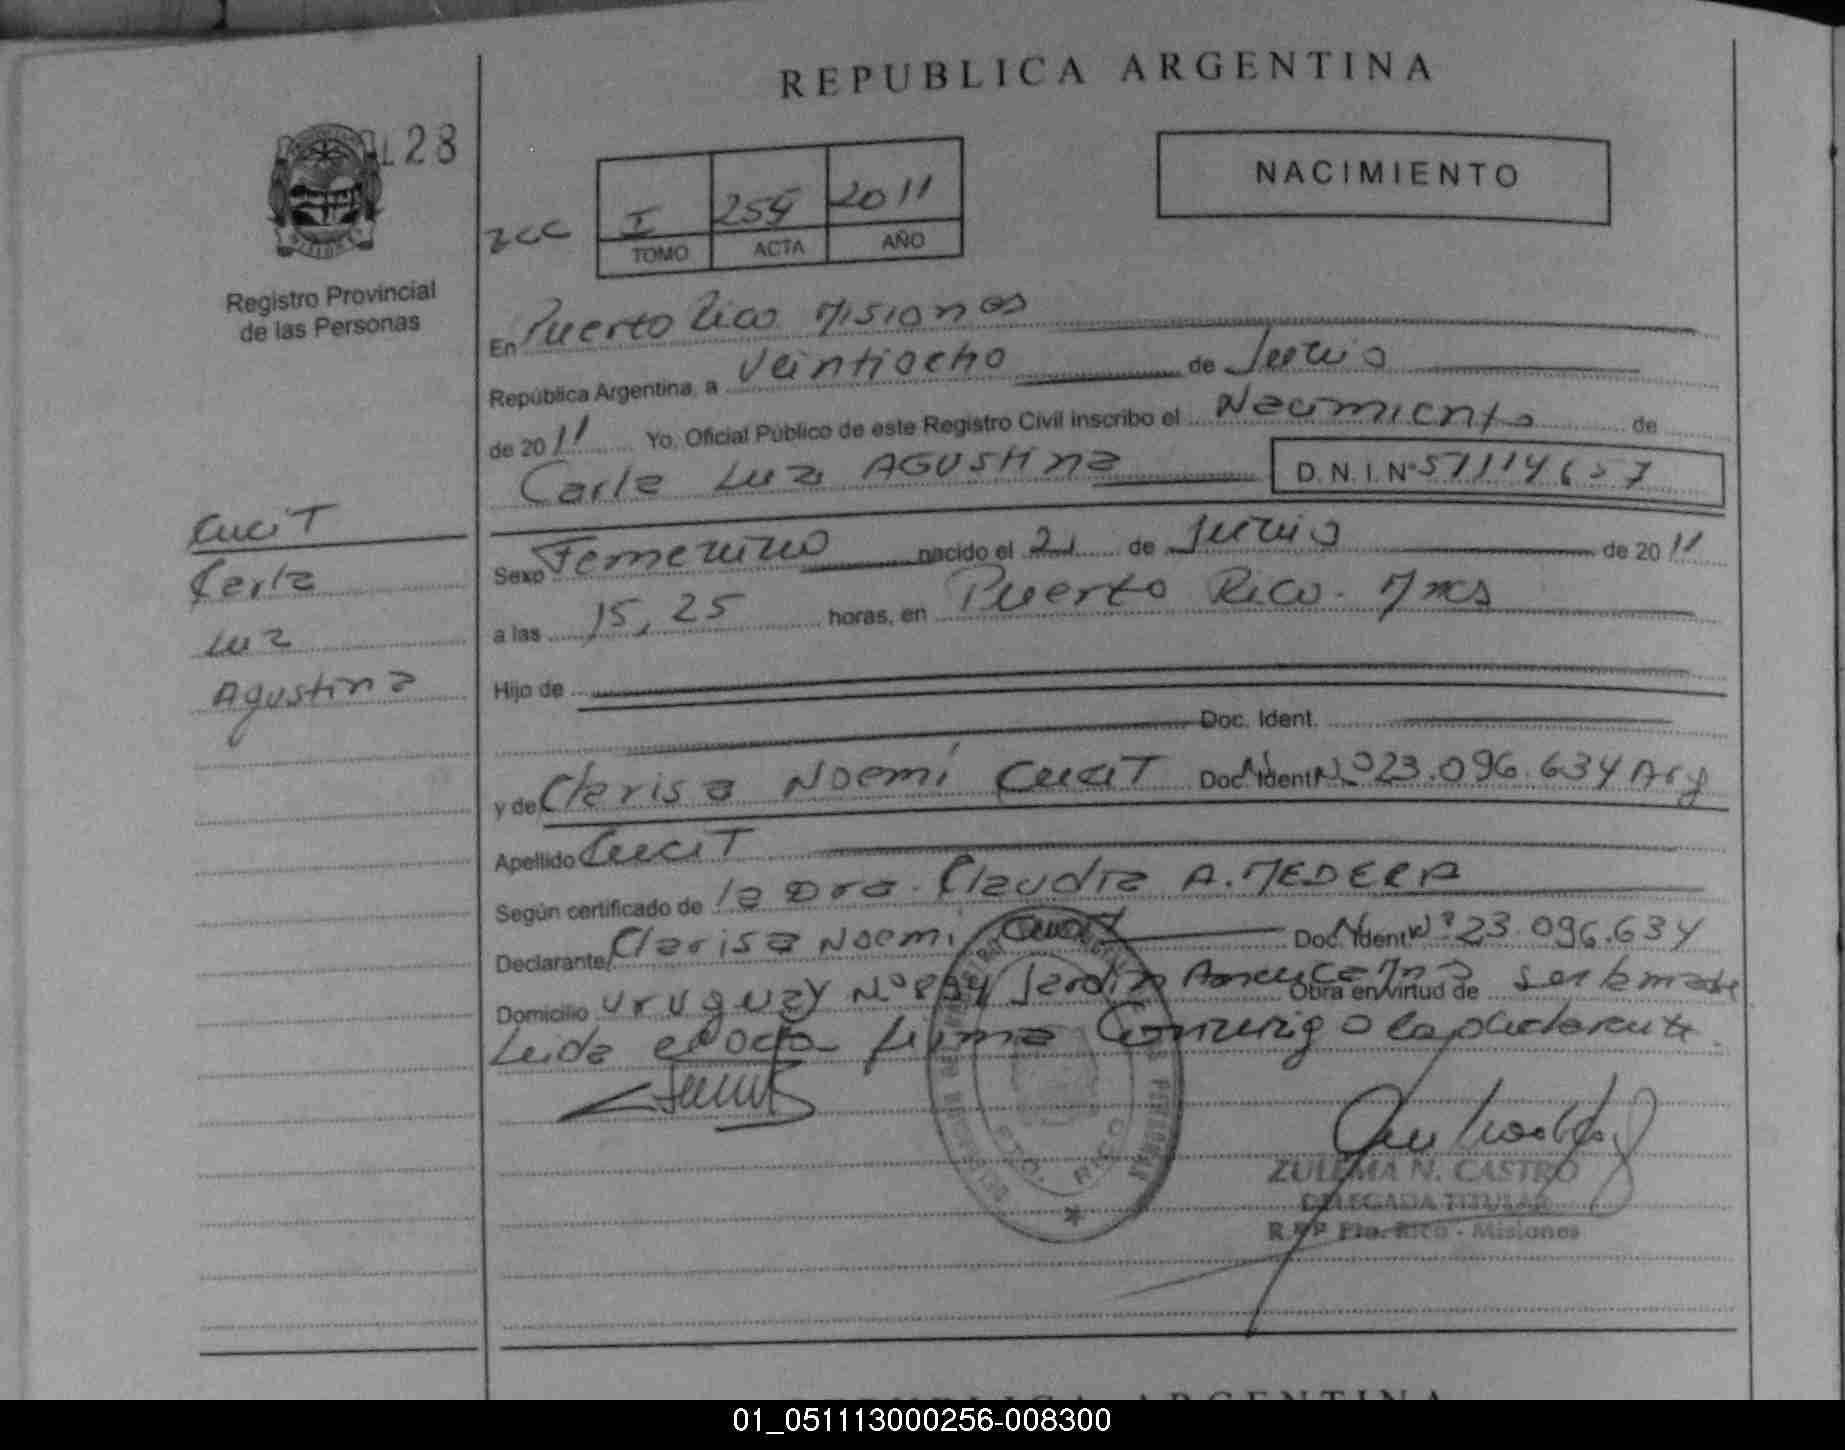 REPUBLICA ARGENTINA
128
NACIMIENTO
I 2011
TOMO ACTA AÑO
Registro Provincial
de las Personas
En Puerto Rico Misiones
República Argentina, a Veintiocho de Junio
de 2011 Yo, Oficial Público de este Registro Civil inscribo el Nacimiento de
Carla Luz AGUSTINA D.N.I.Nº
CuciT
Carla
Luz
Agustina
Sexo Femenino nacido el 21 de Junio de 2011
a las 15,25 horas, en Puerto Rico. Mnes
Hijo de
Doc. Ident.
y de Clarisa Noemí CuciT Doc. Ident Nº 23.096.634 Arg
Apellido CuciT
Según certificado de la Dra. Claudia A. MEDERA
Declarante Clarisa Noemi CuciT Doc. Ident Nº 23.096.634
Domicilio Uruguay Nº 894 Jardin America Mnes Obra en virtud de ser la madre
Leida el acta firma Conmigo la declarante.
PTO. RICO
ZULEMA N. CASTRO
DELEGADA TITULAR
R.P.P Pto. Rico - Misiones
REPUBLICA ARGENTINA
01_051113000256-008300